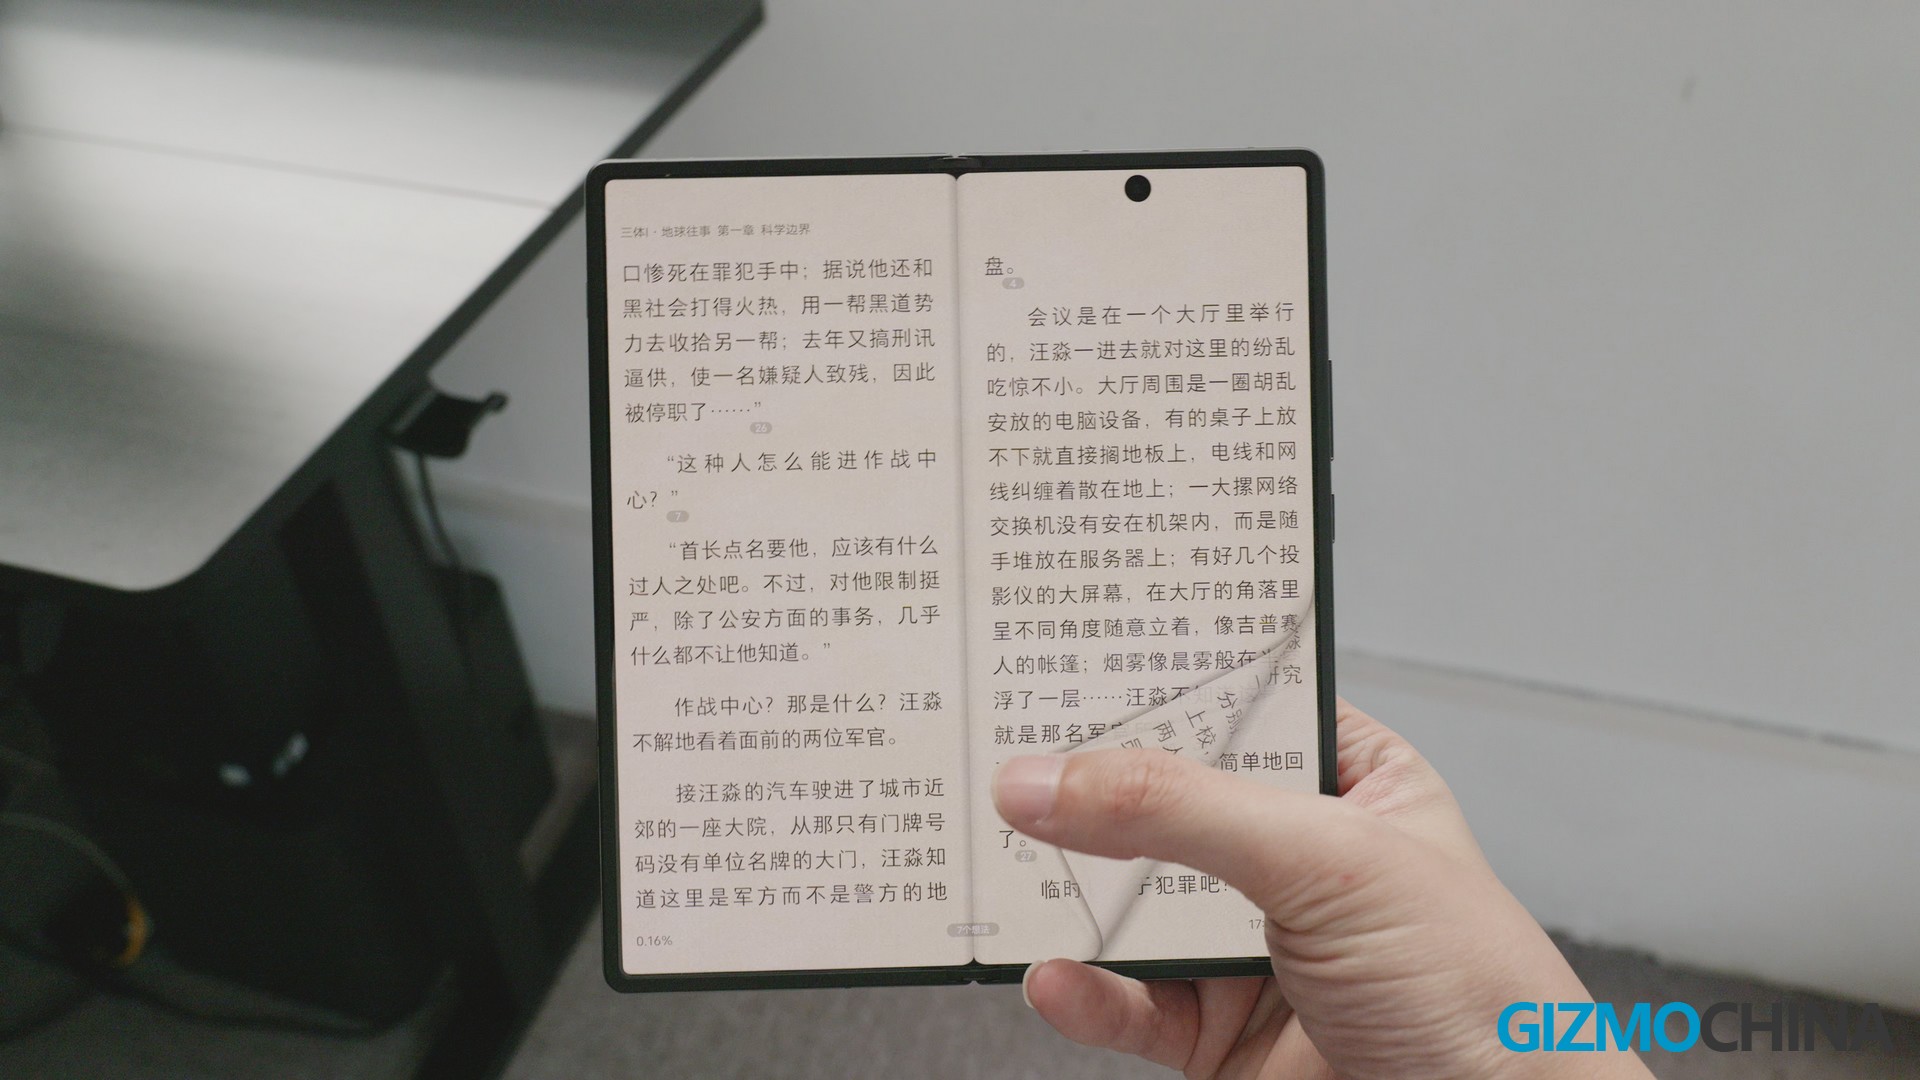 三体I · 地球往事 第一章 科学边界
口惨死在罪犯手中；据说他还和
黑社会打得火热，用一帮黑道势
力去收拾另一帮；去年又搞刑讯
逼供，使一名嫌疑人致残，因此
被停职了……”
26
“这种人怎么能进作战中
心？”
7
“首长点名要他，应该有什么
过人之处吧。不过，对他限制挺
严，除了公安方面的事务，几乎
什么都不让他知道。”
作战中心？那是什么？汪淼
不解地看着面前的两位军官。
接汪淼的汽车驶进了城市近
郊的一座大院，从那只有门牌号
码没有单位名牌的大门，汪淼知
道这里是军方而不是警方的地
0.16%
7个想法
盘。
4
会议是在一个大厅里举行
的，汪淼一进去就对这里的纷乱
吃惊不小。大厅周围是一圈胡乱
安放的电脑设备，有的桌子上放
不下就直接搁地板上，电线和网
线纠缠着散在地上；一大摞网络
交换机没有安在机架内，而是随
手堆放在服务器上；有好几个投
影仪的大屏幕，在大厅的角落里
呈不同角度随意立着，像吉普赛
人的帐篷；烟雾像晨雾般在半
研究
浮了一层……汪淼不知
分别
上校，
两人
就是那名军官
简单地回
了。
27
临时
于犯罪吧！
17:
GIZMOCHINA